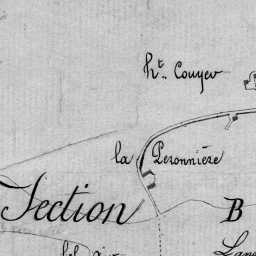 ht. Couyer
la Peronnière
Section B